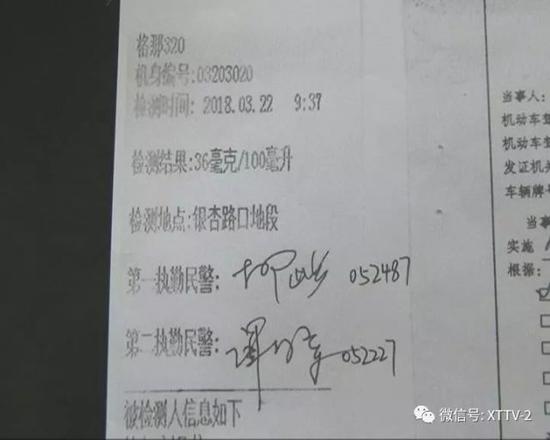 格那320
机身编号:03203020
检测时间: 2018.03.22 9:37
检测结果:36毫克/100毫升
检测地点:银杏路口地段
第一执勤民警: 052487
第二执勤民警: 052227
被检测人信息如下
当事人:
机动车
机动车
发证机关
车辆牌号
当事
实施
根据:
微信号: XTTV-2